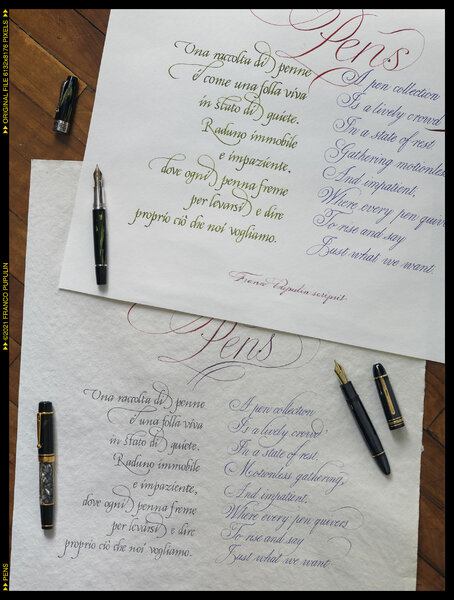 Pens
Una raccolta di penne
è come una folla viva
in stato di quiete.
Raduno immobile
e impaziente,
dove ogni penna freme
per levarsi e dire
proprio ciò che noi vogliamo.
A pen collection
Is a lively crowd
In a state of rest
Gathering motionless
And impatient,
Where every pen quivers
To rise and say
Just what we want
Franco Pupulin scripsit
Pens
Una raccolta di penne
è una folla viva
in stato di quiete.
Raduno immobile
e impaziente,
dove ogni penna freme
per levarsi e dire
proprio ciò che noi vogliamo.
A pen collection
Is a lively crowd,
In a state of rest.
Motionless gathering,
And impatient.
Where every pen quivers
To rise and say
Just what we want
ORIGINAL FILE 6132x8176 PIXELS
©2021 FRANCO PUPULIN
PENS